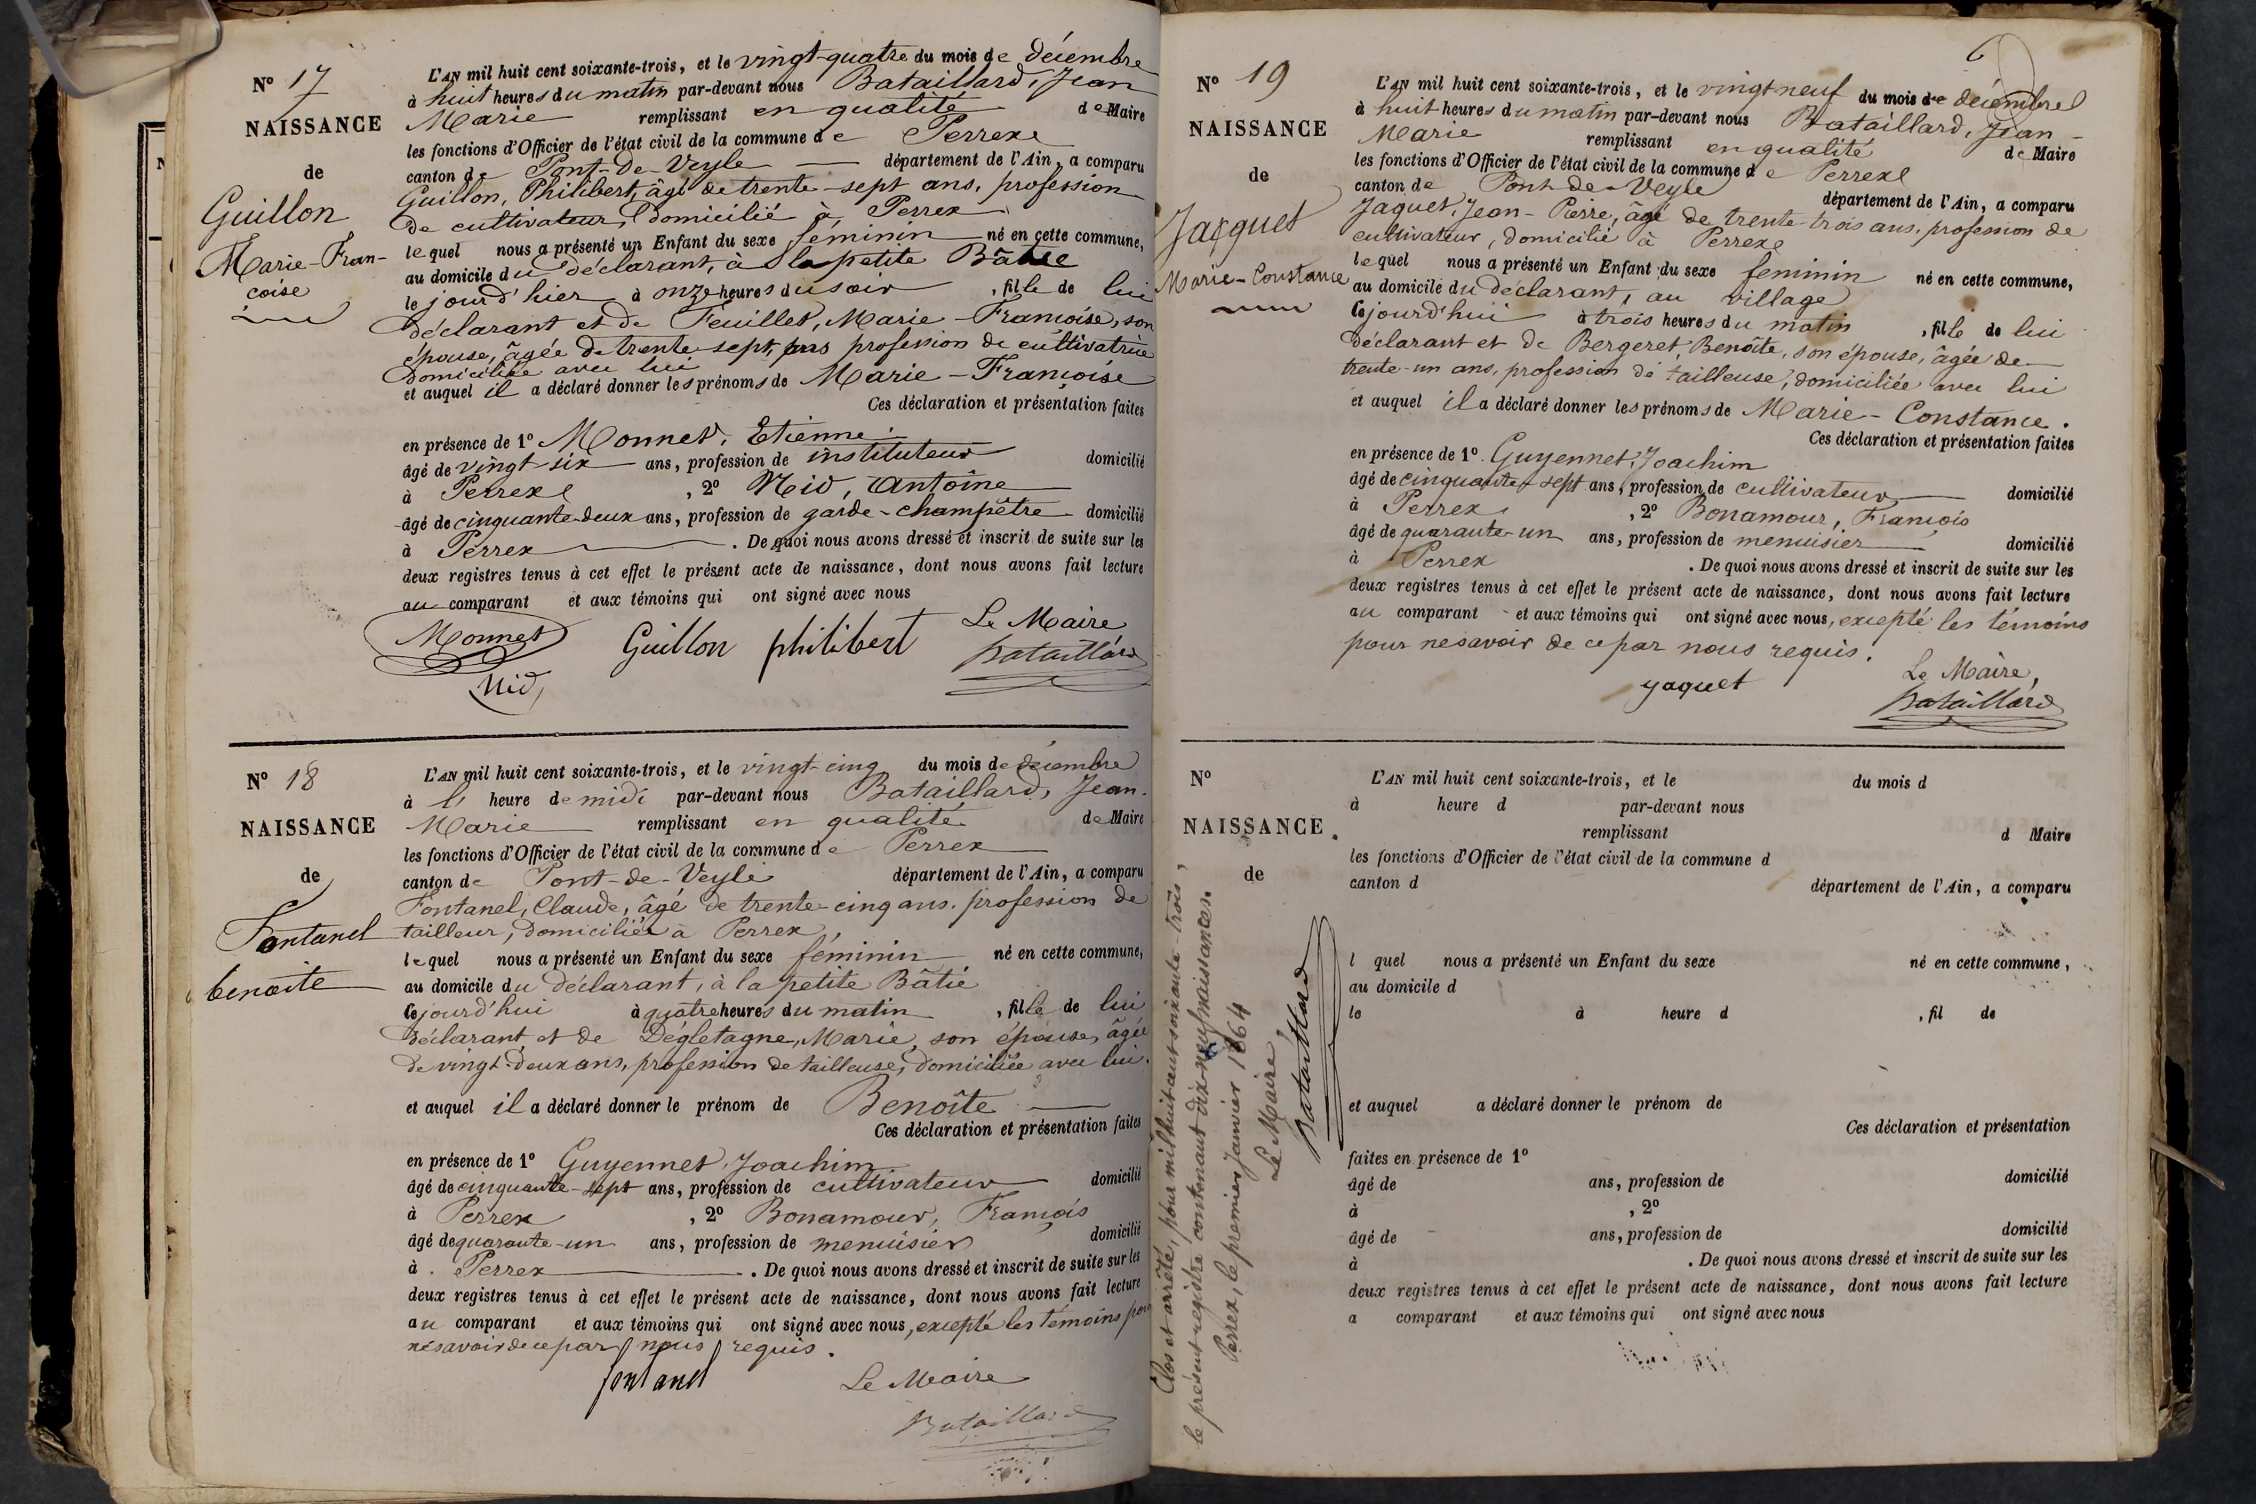 N° 17
NAISSANCE
de
Guillon
Marie-Fran-
coise
L'AN mil huit cent soixante-trois, et le vingt-quatre du mois de décembre
à huit heures du matin par-devant nous Bataillard, Jean
Marie remplissant en qualité de Maire
les fonctions d'Officier de l'état civil de la commune de Perrex
canton de Pont-de-Veyle département de l'Ain, a comparu
Guillon, Philibert, âgé de trente-sept ans, profession
de cultivateur, domicilié à Perrex
lequel nous a présenté un Enfant du sexe féminin né en cette commune,
au domicile du déclarant, à la petite Bâtie
le jour d'hier à onze heures du soir, fille de lui
déclarant et de Feuillet, Marie-Francoise, son
épouse, âgée de trente-sept ans profession de cultivatrice
domiciliée avec lui
et auquel il a déclaré donner les prénoms de Marie-Francoise
Ces déclaration et présentation faites
en présence de 1° Monnet, Etienne
âgé de vingt-six ans, profession de instituteur domicilié
à Perrex, 2° Nid, Antoine
âgé de cinquante-deux ans, profession de garde-champêtre domicilié
à Perrex. De quoi nous avons dressé et inscrit de suite sur les
deux registres tenus à cet effet le présent acte de naissance, dont nous avons fait lecture
au comparant et aux témoins qui ont signé avec nous
Monnet Guillon philibert Le Maire
Nid Bataillard
N° 18
NAISSANCE
de
Fontanel
benoite
L'AN mil huit cent soixante-trois, et le vingt-cinq du mois de décembre
à l' heure de midi par-devant nous Bataillard, Jean-
Marie remplissant en qualité de Maire
les fonctions d'Officier de l'état civil de la commune de Perrex
canton de Pont-de-Veyle département de l'Ain, a comparu
Fontanel, Claude, âgé de trente-cinq ans, profession de
tailleur, domicilié à Perrex,
lequel nous a présenté un Enfant du sexe féminin né en cette commune,
au domicile du déclarant, à la petite Bâtie
cejourd'hui à quatre heures du matin, fille de lui
déclarant et de Dégletagne, Marie, son épouse, âgée
de vingt-deux ans, profession de tailleuse, domiciliée avec lui.
et auquel il a déclaré donner le prénom de Benoîte
Ces déclaration et présentation faites
en présence de 1° Guyennet, Joachim
âgé de cinquante-sept ans, profession de cultivateur domicilié
à Perrex, 2° Bonamour, François
âgé de quarante-un ans, profession de menuisier domicilié
à Perrex. De quoi nous avons dressé et inscrit de suite sur les
deux registres tenus à cet effet le présent acte de naissance, dont nous avons fait lecture
au comparant et aux témoins qui ont signé avec nous, excepté les témoins pour
ne savoir de ce par nous requis.
fontanel Le Maire
Bataillard
6
N° 19
NAISSANCE
de
Jacquet
Marie-Constance
L'AN mil huit cent soixante-trois, et le vingt neuf du mois de décembre
à huit heures du matin par-devant nous Bataillard, Jean-
Marie remplissant en qualité de Maire
les fonctions d'Officier de l'état civil de la commune de Perrex
canton de Pont-de-Veyle département de l'Ain, a comparu
Jaquet, Jean-Pierre, âgé de trente-trois ans, profession de
cultivateur, domicilié à Perrex
lequel nous a présenté un Enfant du sexe feminin né en cette commune,
au domicile du déclarant, au village
cejourd'hui à trois heures du matin, fille de lui
déclarant et de Bergeret, Benoîte, son épouse, âgée de
trente-un ans, profession de tailleuse, domiciliée avec lui
et auquel il a déclaré donner les prénoms de Marie-Constance.
Ces déclaration et présentation faites
en présence de 1° Guyennet, Joachim
âgé de cinquante-sept ans, profession de cultivateur domicilié
à Perrex, 2° Bonamour, François
âgé de quarante-un ans, profession de menuisier domicilié
à Perrex. De quoi nous avons dressé et inscrit de suite sur les
deux registres tenus à cet effet le présent acte de naissance, dont nous avons fait lecture
au comparant et aux témoins qui ont signé avec nous, excepté les témoins
pour ne savoir de ce par nous requis.
yaquet Le Maire,
Bataillard
N°
NAISSANCE
de
L'AN mil huit cent soixante-trois, et le du mois d
à heure d par-devant nous
remplissant d Maire
les fonctions d'Officier de l'état civil de la commune d
canton d département de l'Ain, a comparu
l quel nous a présenté un Enfant du sexe né en cette commune,
au domicile d
le à heure d, fil de
et auquel a déclaré donner le prénom de
Ces déclaration et présentation
faites en présence de 1°
âgé de ans, profession de domicilié
à, 2°
âgé de ans, profession de domicilié
à. De quoi nous avons dressé et inscrit de suite sur les
deux registres tenus à cet effet le présent acte de naissance, dont nous avons fait lecture
a comparant et aux témoins qui ont signé avec nous
Clos et arrêté, pour mil huit cent soixante-trois,
le présent registre contenant dix-neuf naissances.
Perrex, le premier Janvier 1864
Le Maire,
Bataillard